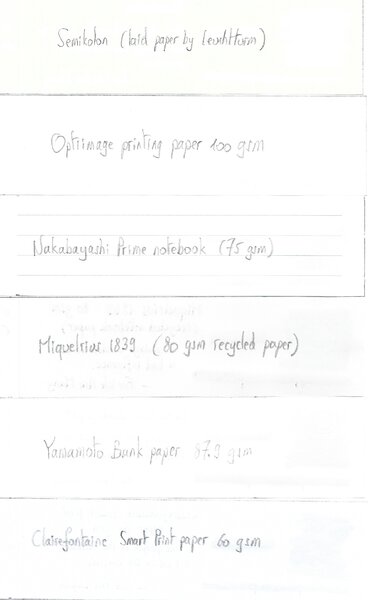 Semikolon (laid paper by Leuchtturm)
Optiimage printing paper 100 gsm
Nakabayashi Prime notebook (75 gsm)
Miquelrius 1839 (80 gsm recycled paper)
Yamamoto Bank paper 67.9 gsm
Clairefontaine Smart Print paper 60 gsm